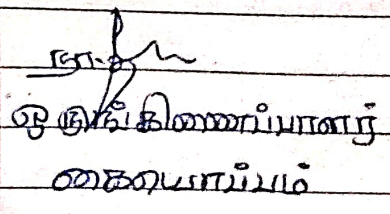 ஒருங்கிணைப்பாளர்
கையொப்பம்